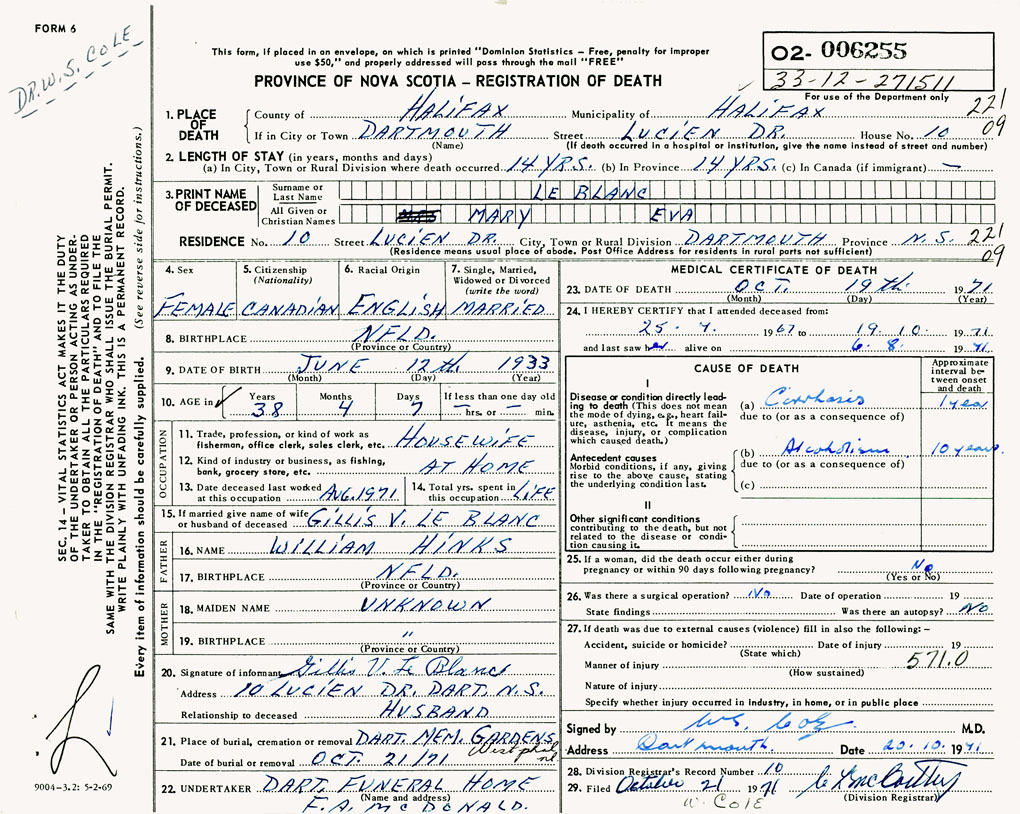 FORM 6
DR. W. S. COLE
This form, if placed in an envelope, on which is printed "Dominion Statistics — Free, penalty for improper
use $50," and properly addressed will pass through the mail "FREE"
PROVINCE OF NOVA SCOTIA — REGISTRATION OF DEATH
02- 006255
33-12-271511
For use of the Department only
221
09
1. PLACE OF DEATH
County of HALIFAX Municipality of HALIFAX
If in City or Town DARTMOUTH Street LUCIEN DR. House No. 10
(Name) (If death occurred in a hospital or institution, give the name instead of street and number)
2. LENGTH OF STAY (in years, months and days)
(a) In City, Town or Rural Division where death occurred 14 YRS. (b) In Province 14 YRS. (c) In Canada (if immigrant) —
3. PRINT NAME OF DECEASED
Surname or Last Name LE BLANC
All Given or Christian Names MARY EVA
RESIDENCE No. 10 Street LUCIEN DR. City, Town or Rural Division DARTMOUTH Province N.S. 221
(Residence means usual place of abode. Post Office Address for residents in rural parts not sufficient) 09
4. Sex
FEMALE
5. Citizenship (Nationality)
CANADIAN
6. Racial Origin
ENGLISH
7. Single, Married, Widowed or Divorced (write the word)
MARRIED
8. BIRTHPLACE NFLD.
(Province or Country)
9. DATE OF BIRTH JUNE 12th 1933
(Month) (Day) (Year)
10. AGE in Years Months Days If less than one day old
38 4 7 — hrs. or — min.
OCCUPATION
11. Trade, profession, or kind of work as fishermen, office clerk, sales clerk, etc. HOUSEWIFE
12. Kind of industry or business, as fishing, bank, grocery store, etc. AT HOME
13. Date deceased last worked at this occupation AUG. 1971
14. Total yrs. spent in this occupation LIFE
15. If married give name of wife or husband of deceased GILLIS V. LE BLANC
FATHER
16. NAME WILLIAM HINKS
17. BIRTHPLACE NFLD.
(Province or Country)
MOTHER
18. MAIDEN NAME UNKNOWN
19. BIRTHPLACE "
(Province or Country)
20. Signature of informant Gillis V. Le Blanc
Address 10 LUCIEN DR. DART. N.S.
Relationship to deceased HUSBAND
21. Place of burial, cremation or removal DART. MEM. GARDENS
Westphal
Date of burial or removal OCT. 21/71
22. UNDERTAKER DART FUNERAL HOME
(Name and address)
F. A. McDONALD.
MEDICAL CERTIFICATE OF DEATH
23. DATE OF DEATH OCT. 19th 1971
(Month) (Day) (Year)
24. I HEREBY CERTIFY that I attended deceased from:
25. 7. 1967 to 19. 10. 1971
and last saw her alive on 6. 8. 1971
CAUSE OF DEATH
Approximate interval between onset and death
I
Disease or condition directly leading to death (This does not mean the mode of dying, e.g., heart failure, asthenia, etc. It means the disease, injury, or complication which caused death.)
(a) Cirrhosis 1 year
due to (or as a consequence of)
Antecedent causes
Morbid conditions, if any, giving rise to the above cause, stating the underlying condition last.
(b) Alcoholism 10 years.
due to (or as a consequence of)
(c)
II
Other significant conditions
contributing to the death, but not related to the disease or condition causing it.
25. If a woman, did the death occur either during pregnancy or within 90 days following pregnancy? No
(Yes or No)
26. Was there a surgical operation? No Date of operation 19
State findings Was there an autopsy? No
27. If death was due to external causes (violence) fill in also the following: —
Accident, suicide or homicide? Date of injury 19
(State which)
Manner of injury 571.0
(How sustained)
Nature of injury
Specify whether injury occurred in industry, in home, or in public place
Signed by W.S. Cole M.D.
Address Dartmouth. Date 20.10. 1971
28. Division Registrar's Record Number 10
29. Filed October 21 1971
(Division Registrar)
W. COLE
SEC. 14 — VITAL STATISTICS ACT MAKES IT THE DUTY
OF THE UNDERTAKER OR PERSON ACTING AS UNDER-
TAKER TO OBTAIN ALL THE PARTICULARS REQUIRED
IN THE "REGISTRATION OF DEATH" AND TO FILE THE
SAME WITH THE DIVISION REGISTRAR WHO SHALL ISSUE THE BURIAL PERMIT.
WRITE PLAINLY WITH UNFADING INK. THIS IS A PERMANENT RECORD.
Every item of information should be carefully supplied. (See reverse side for instructions.)
9004-3.2: 5-2-69